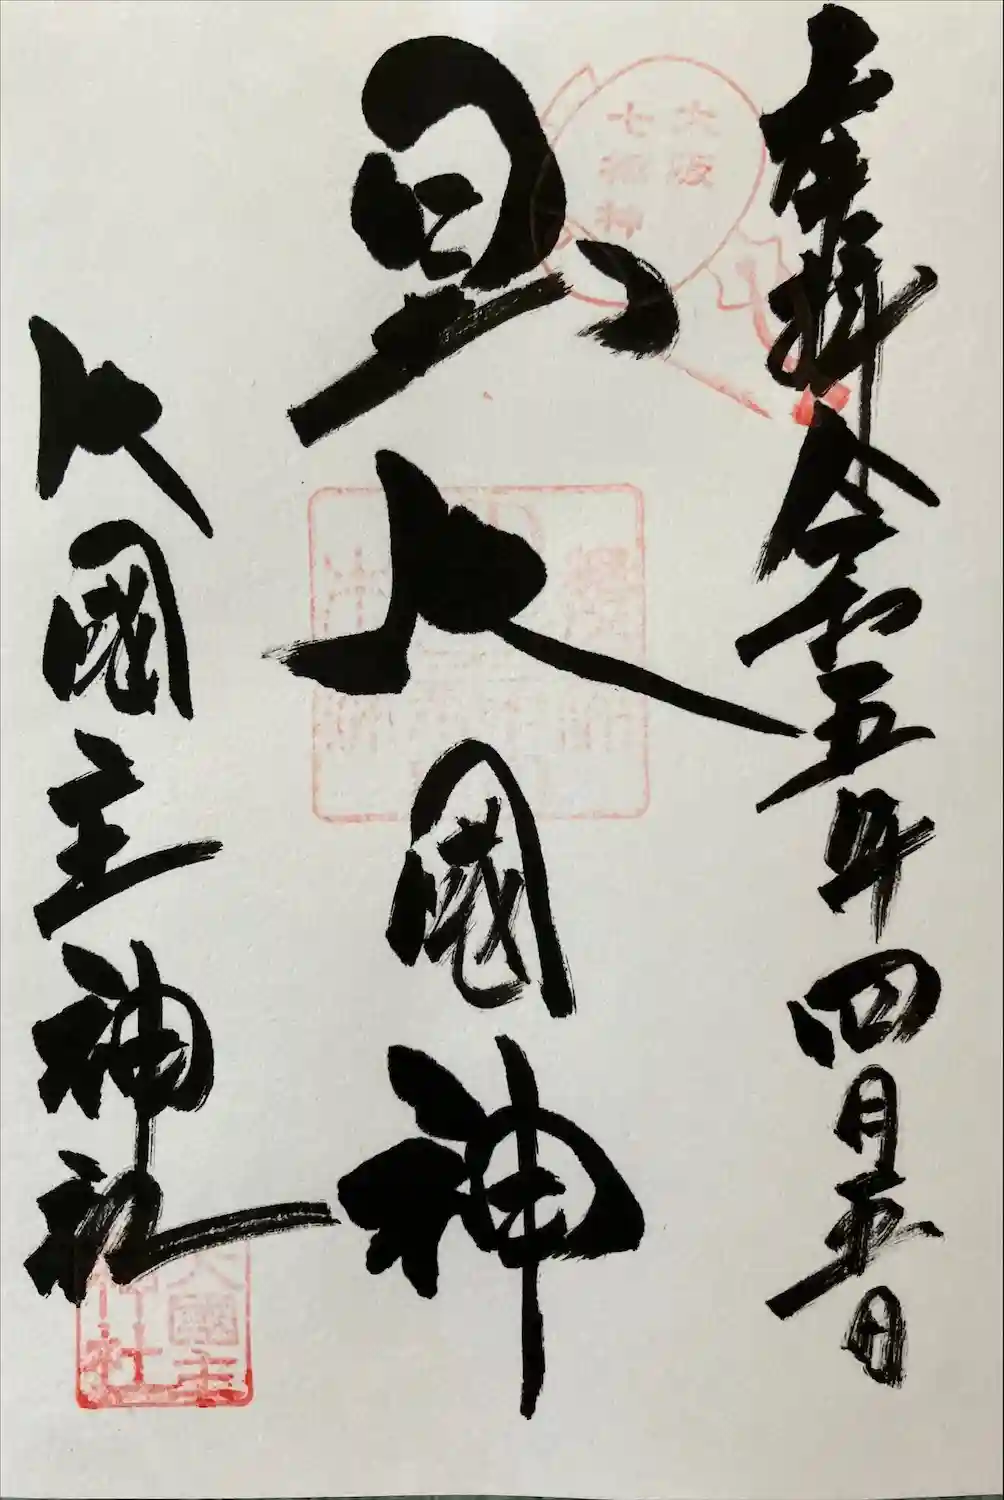 奉拝 令和五年四月五日
大國神
大國主神社
大阪
七福神
大國主
神社